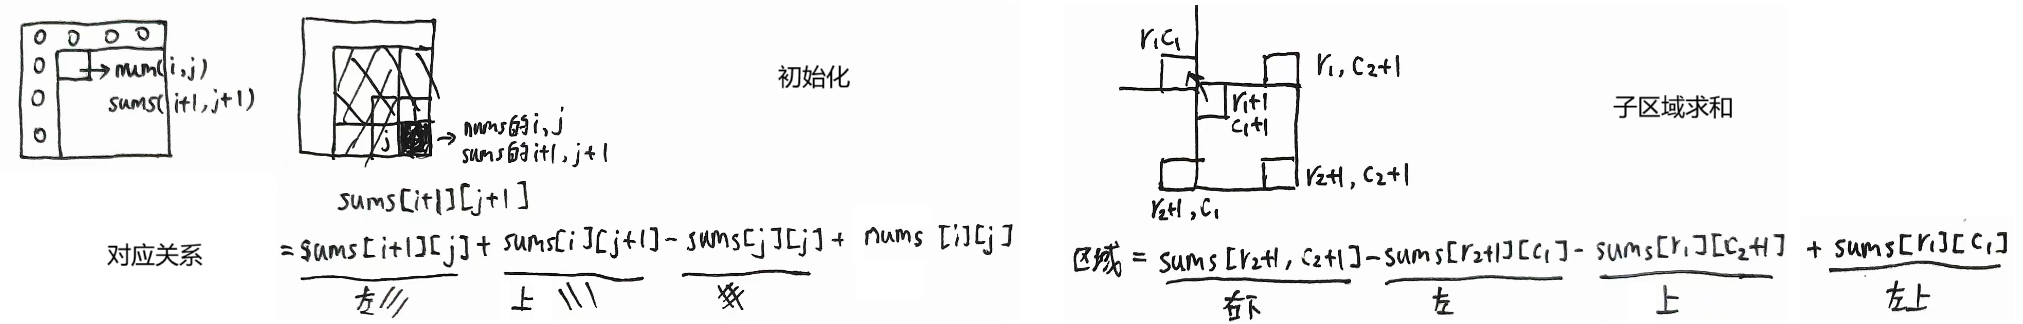 0 0 0 0
0
0
0
num(i,j)
sums(i+1,j+1)
j
nums的i,j
sums的i+1,j+1
初始化
sums[i+1][j+1]
对应关系
=sums[i+1][j]+sums[i][j+1]-sums[j][j]+nums[i][j]
左
上
r1c1
r1,c2+1
r1+1
c1+1
r2+1,c1
r2+1,c2+1
子区域求和
区域=sums[r2+1,c2+1]-sums[r2+1][c1]-sums[r1][c2+1]+sums[r1][c1]
右下
左
上
左上